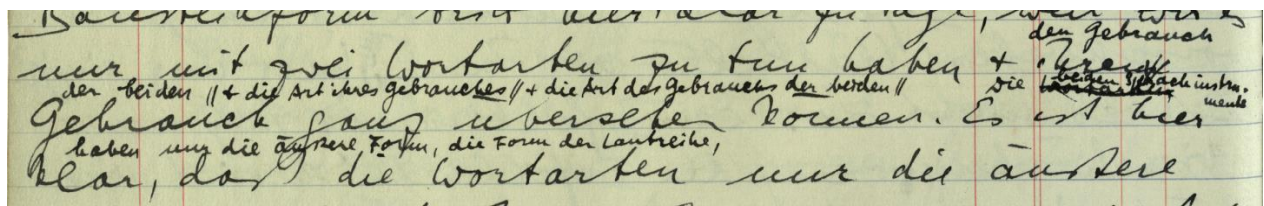 Bausteinform tritt hier klar zu Tage, weil wir es
den Gebrauch
nur mit zwei Wortarten zu tun haben + ihren
der beiden // + die Art ihres Gebrauches // + die Art des Gebrauchs der beiden // die beiden Sprachinstru-
mente
Gebrauch ganz übersehen können. Es ist hier
haben nur die äußere Form, die Form der Lautreihe,
klar, daß die Wortarten nur die äußere